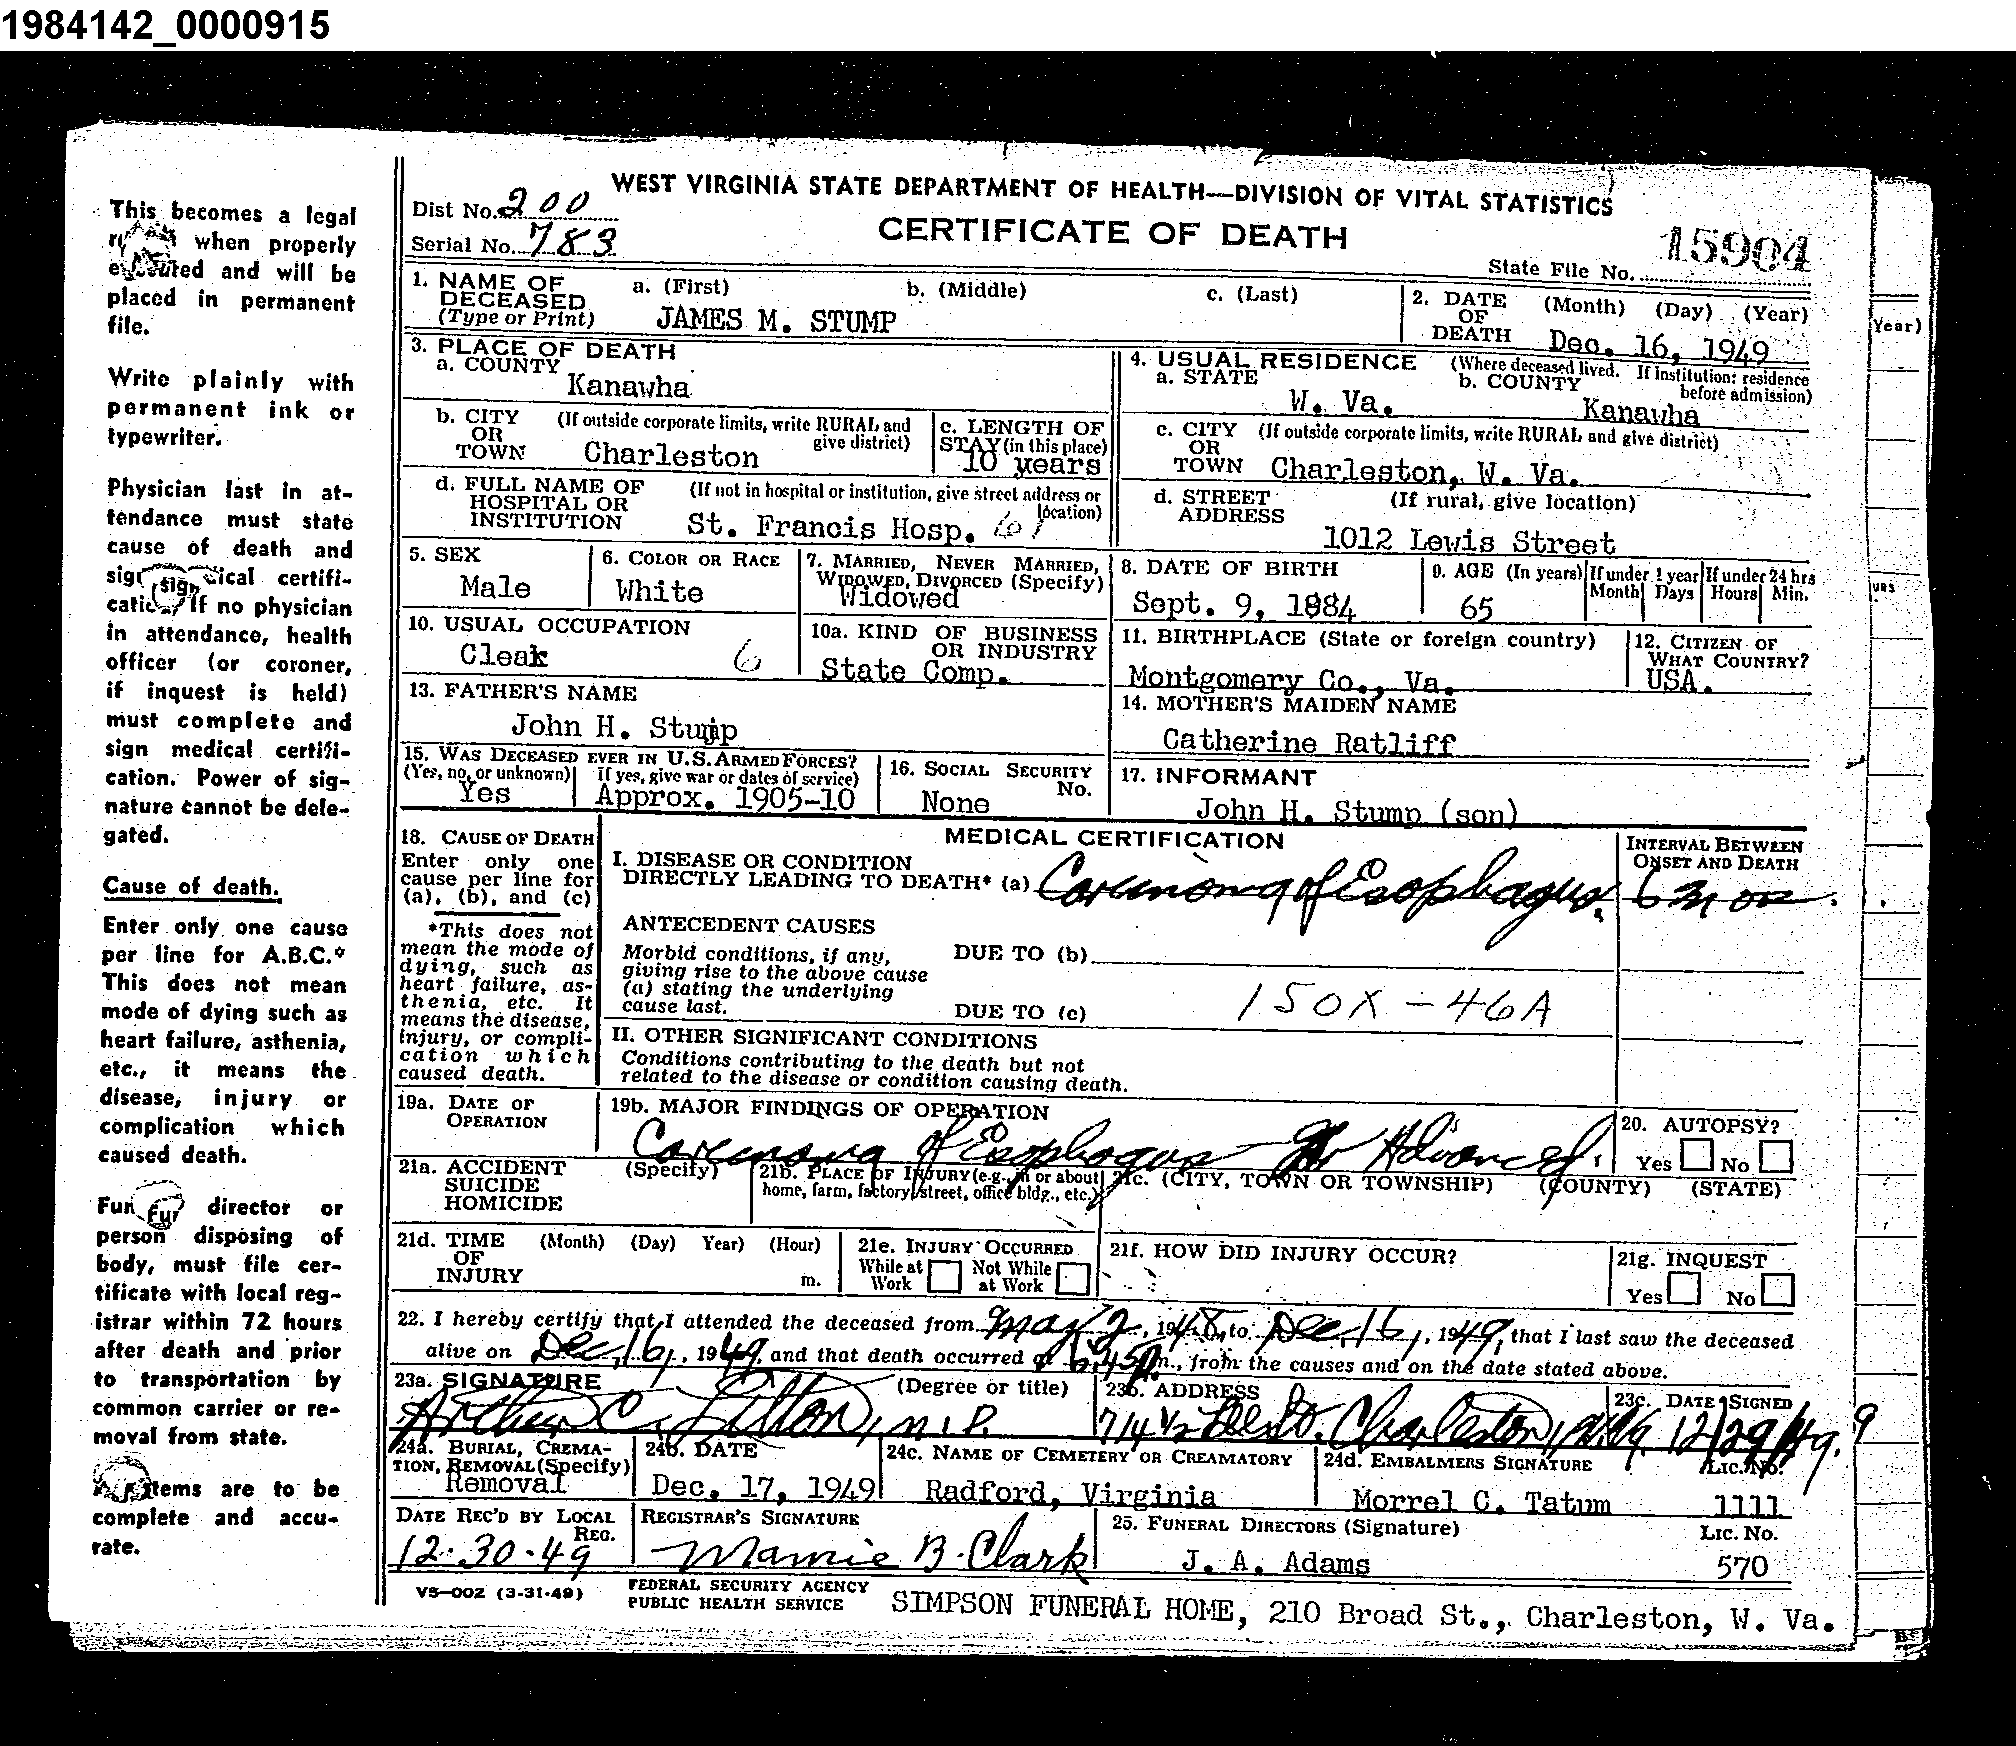 1984142_0000915
WEST VIRGINIA STATE DEPARTMENT OF HEALTH—DIVISION OF VITAL STATISTICS
CERTIFICATE OF DEATH
Dist No. 200
Serial No. 783
State File No. 15904
1. NAME OF DECEASED (Type or Print) a. (First) b. (Middle) c. (Last)
JAMES M. STUMP
2. DATE OF DEATH (Month) (Day) (Year)
Dec. 16, 1949
3. PLACE OF DEATH
a. COUNTY
Kanawha
4. USUAL RESIDENCE (Where deceased lived. If institution: residence before admission)
a. STATE W. Va. b. COUNTY Kanawha
b. CITY OR TOWN (If outside corporate limits, write RURAL and give district)
Charleston
c. LENGTH OF STAY (in this place)
10 years
c. CITY OR TOWN (If outside corporate limits, write RURAL and give district)
Charleston, W. Va.
d. FULL NAME OF HOSPITAL OR INSTITUTION (If not in hospital or institution, give street address or location)
St. Francis Hosp. 61
d. STREET ADDRESS (If rural, give location)
1012 Lewis Street
5. SEX
Male
6. COLOR OR RACE
White
7. MARRIED, NEVER MARRIED, WIDOWED, DIVORCED (Specify)
Widowed
8. DATE OF BIRTH
Sept. 9, 1884
9. AGE (In years) If under 1 year Month Days If under 24 hrs Hours Min.
65
10. USUAL OCCUPATION
Cleak 6
10a. KIND OF BUSINESS OR INDUSTRY
State Comp.
11. BIRTHPLACE (State or foreign country)
Montgomery Co., Va.
12. CITIZEN OF WHAT COUNTRY?
USA.
13. FATHER'S NAME
John H. Stump
14. MOTHER'S MAIDEN NAME
Catherine Ratliff
15. WAS DECEASED EVER IN U.S. ARMED FORCES?
(Yes, no, or unknown) If yes, give war or dates of service)
Yes Approx. 1905-10
16. SOCIAL SECURITY No.
None
17. INFORMANT
John H. Stump (son)
18. CAUSE OF DEATH
Enter only one cause per line for (a), (b), and (c)
*This does not mean the mode of dying, such as heart failure, asthenia, etc. It means the disease, injury, or complication which caused death.
MEDICAL CERTIFICATION
INTERVAL BETWEEN ONSET AND DEATH
I. DISEASE OR CONDITION DIRECTLY LEADING TO DEATH* (a) Carcinoma of Esophagus. 6 mos.
ANTECEDENT CAUSES
Morbid conditions, if any, giving rise to the above cause (a) stating the underlying cause last.
DUE TO (b)
DUE TO (c)
150X-46A
II. OTHER SIGNIFICANT CONDITIONS
Conditions contributing to the death but not related to the disease or condition causing death.
19a. DATE OF OPERATION
19b. MAJOR FINDINGS OF OPERATION
Carcinoma of Esophagus Advanced.
20. AUTOPSY?
Yes No
21a. ACCIDENT SUICIDE HOMICIDE (Specify)
21b. PLACE OF INJURY (e.g., in or about home, farm, factory, street, office bldg., etc.)
21c. (CITY, TOWN OR TOWNSHIP) (COUNTY) (STATE)
21d. TIME OF INJURY (Month) (Day) Year) (Hour) m.
21e. INJURY OCCURRED
While at Work Not While at Work
21f. HOW DID INJURY OCCUR?
21g. INQUEST
Yes No
22. I hereby certify that I attended the deceased from May 2, 1948, to Dec. 16, 1949, that I last saw the deceased
alive on Dec. 16, 1949, and that death occurred at 6:45 p.m., from the causes and on the date stated above.
23a. SIGNATURE (Degree or title)
Arthur C. Litton, M.D.
23b. ADDRESS
714 1/2 Charleston, W. Va.
23c. DATE SIGNED
12/29/49.
24a. BURIAL, CREMATION, REMOVAL (Specify)
Removal
24b. DATE
Dec. 17, 1949
24c. NAME OF CEMETERY OR CREAMATORY
Radford, Virginia
24d. EMBALMERS SIGNATURE LIC. No.
Morrel C. Tatum 1111
DATE REC'D BY LOCAL REG.
12-30-49
REGISTRAR'S SIGNATURE
Mamie B. Clark
25. FUNERAL DIRECTORS (Signature) LIC. No.
J. A. Adams 570
VS-002 (3-31-49)
FEDERAL SECURITY AGENCY
PUBLIC HEALTH SERVICE
SIMPSON FUNERAL HOME, 210 Broad St., Charleston, W. Va.
This becomes a legal
when properly
executed and will be
placed in permanent
file.
Write plainly with
permanent ink or
typewriter.
Physician last in at-
tendance must state
cause of death and
sign medical certifi-
cation. If no physician
in attendance, health
officer (or coroner,
if inquest is held)
must complete and
sign medical certifi-
cation. Power of sig-
nature cannot be dele-
gated.
Cause of death.
Enter only one cause
per line for A.B.C.*
This does not mean
mode of dying such as
heart failure, asthenia,
etc., it means the
disease, injury or
complication which
caused death.
Fun director or
person disposing of
body, must file cer-
tificate with local reg-
istrar within 72 hours
after death and prior
to transportation by
common carrier or re-
moval from state.
items are to be
complete and accu-
rate.
Year)
URS